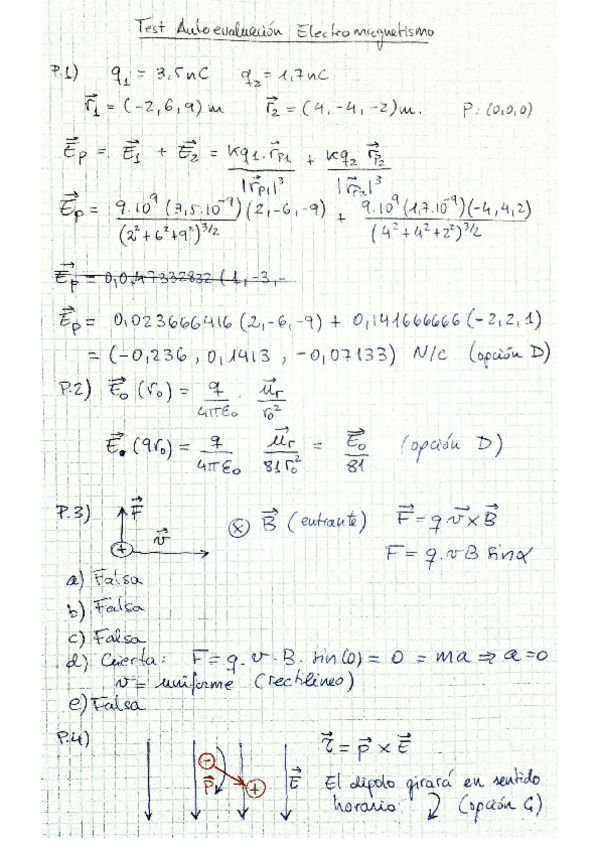 Test Autoevaluación Electromagnetismo
P.1) q₁ = 3,5nC q₂ = 1,7nC
r⃗₁ = (-2,6,9) m r⃗₂ = (4,-4,-2) m. P: (0,0,0)
E⃗p = E⃗₁ + E⃗₂ = Kq₁.r⃗p₁ / |r⃗p₁|³ + Kq₂ r⃗p₂ / |r⃗p₂|³
E⃗p = 9.10⁹ (3,5.10⁻⁹)(2,-6,-9) / (2²+6²+9²)^3/2 + 9.10⁹(1,7.10⁻⁹)(-4,4,2) / (4²+4²+2²)^3/2
E⃗p = 0,047332832 (1,-3,-
E⃗p = 0,023666416 (2,-6,-9) + 0,141666666 (-2,2,1)
= (-0,236, 0,1413, -0,07133) N/C (opción D)
P.2) E⃗₀(r₀) = q / 4πε₀ . u⃗r / r₀²
E⃗₀(9r₀) = q / 4πε₀ u⃗r / 81r₀² = E⃗₀ / 81 (opción D)
P.3) F⃗ + v⃗ ⊗ B⃗ (entrante) F⃗ = q v⃗ x B⃗
F = q.vB sinα
a) Falsa
b) Falsa
c) Falsa
d) Cierta: F = q.v.B. sin(0) = 0 = ma ⇒ a = 0
v = uniforme (rectilíneo)
e) Falsa
P.4) τ⃗ = p⃗ x E⃗
- p⃗ + E⃗ El dipolo girará en sentido
horario. (opción G)